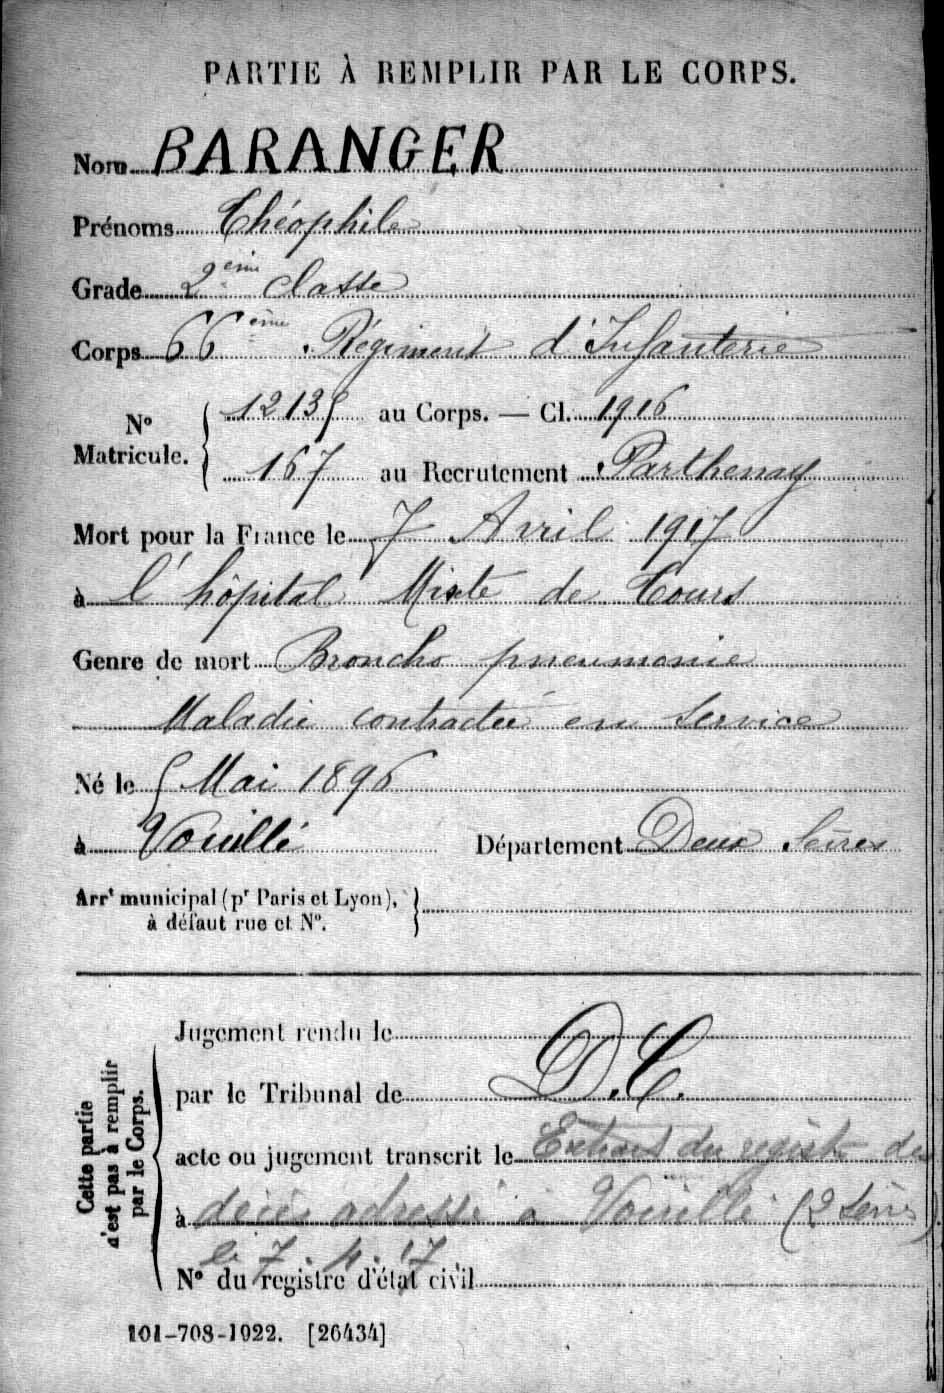 PARTIE À REMPLIR PAR LE CORPS.
Nom BARANGER
Prénoms Théophile
Grade 2ème classe
Corps 66ème Régiment d'Infanterie
N° Matricule. { 12135 au Corps. — Cl. 1916
167 au Recrutement Parthenay
Mort pour la France le 7 Avril 1917
à l'hôpital Mixte de Tours
Genre de mort Broncho pneumonie
Maladie contractée en service
Né le 5 Mai 1896
à Vouillé Département Deux Sèvres
Arrt municipal (pr Paris et Lyon), à défaut rue et N°. }
Cette partie n'est pas à remplir par le Corps.
Jugement rendu le
par le Tribunal de D.C.
acte ou jugement transcrit le Extrait du registre des
à décès adressé à Vouillé (2 Sèvres)
le 7.4.17
N° du registre d'état civil
101-708-1922. [26434]